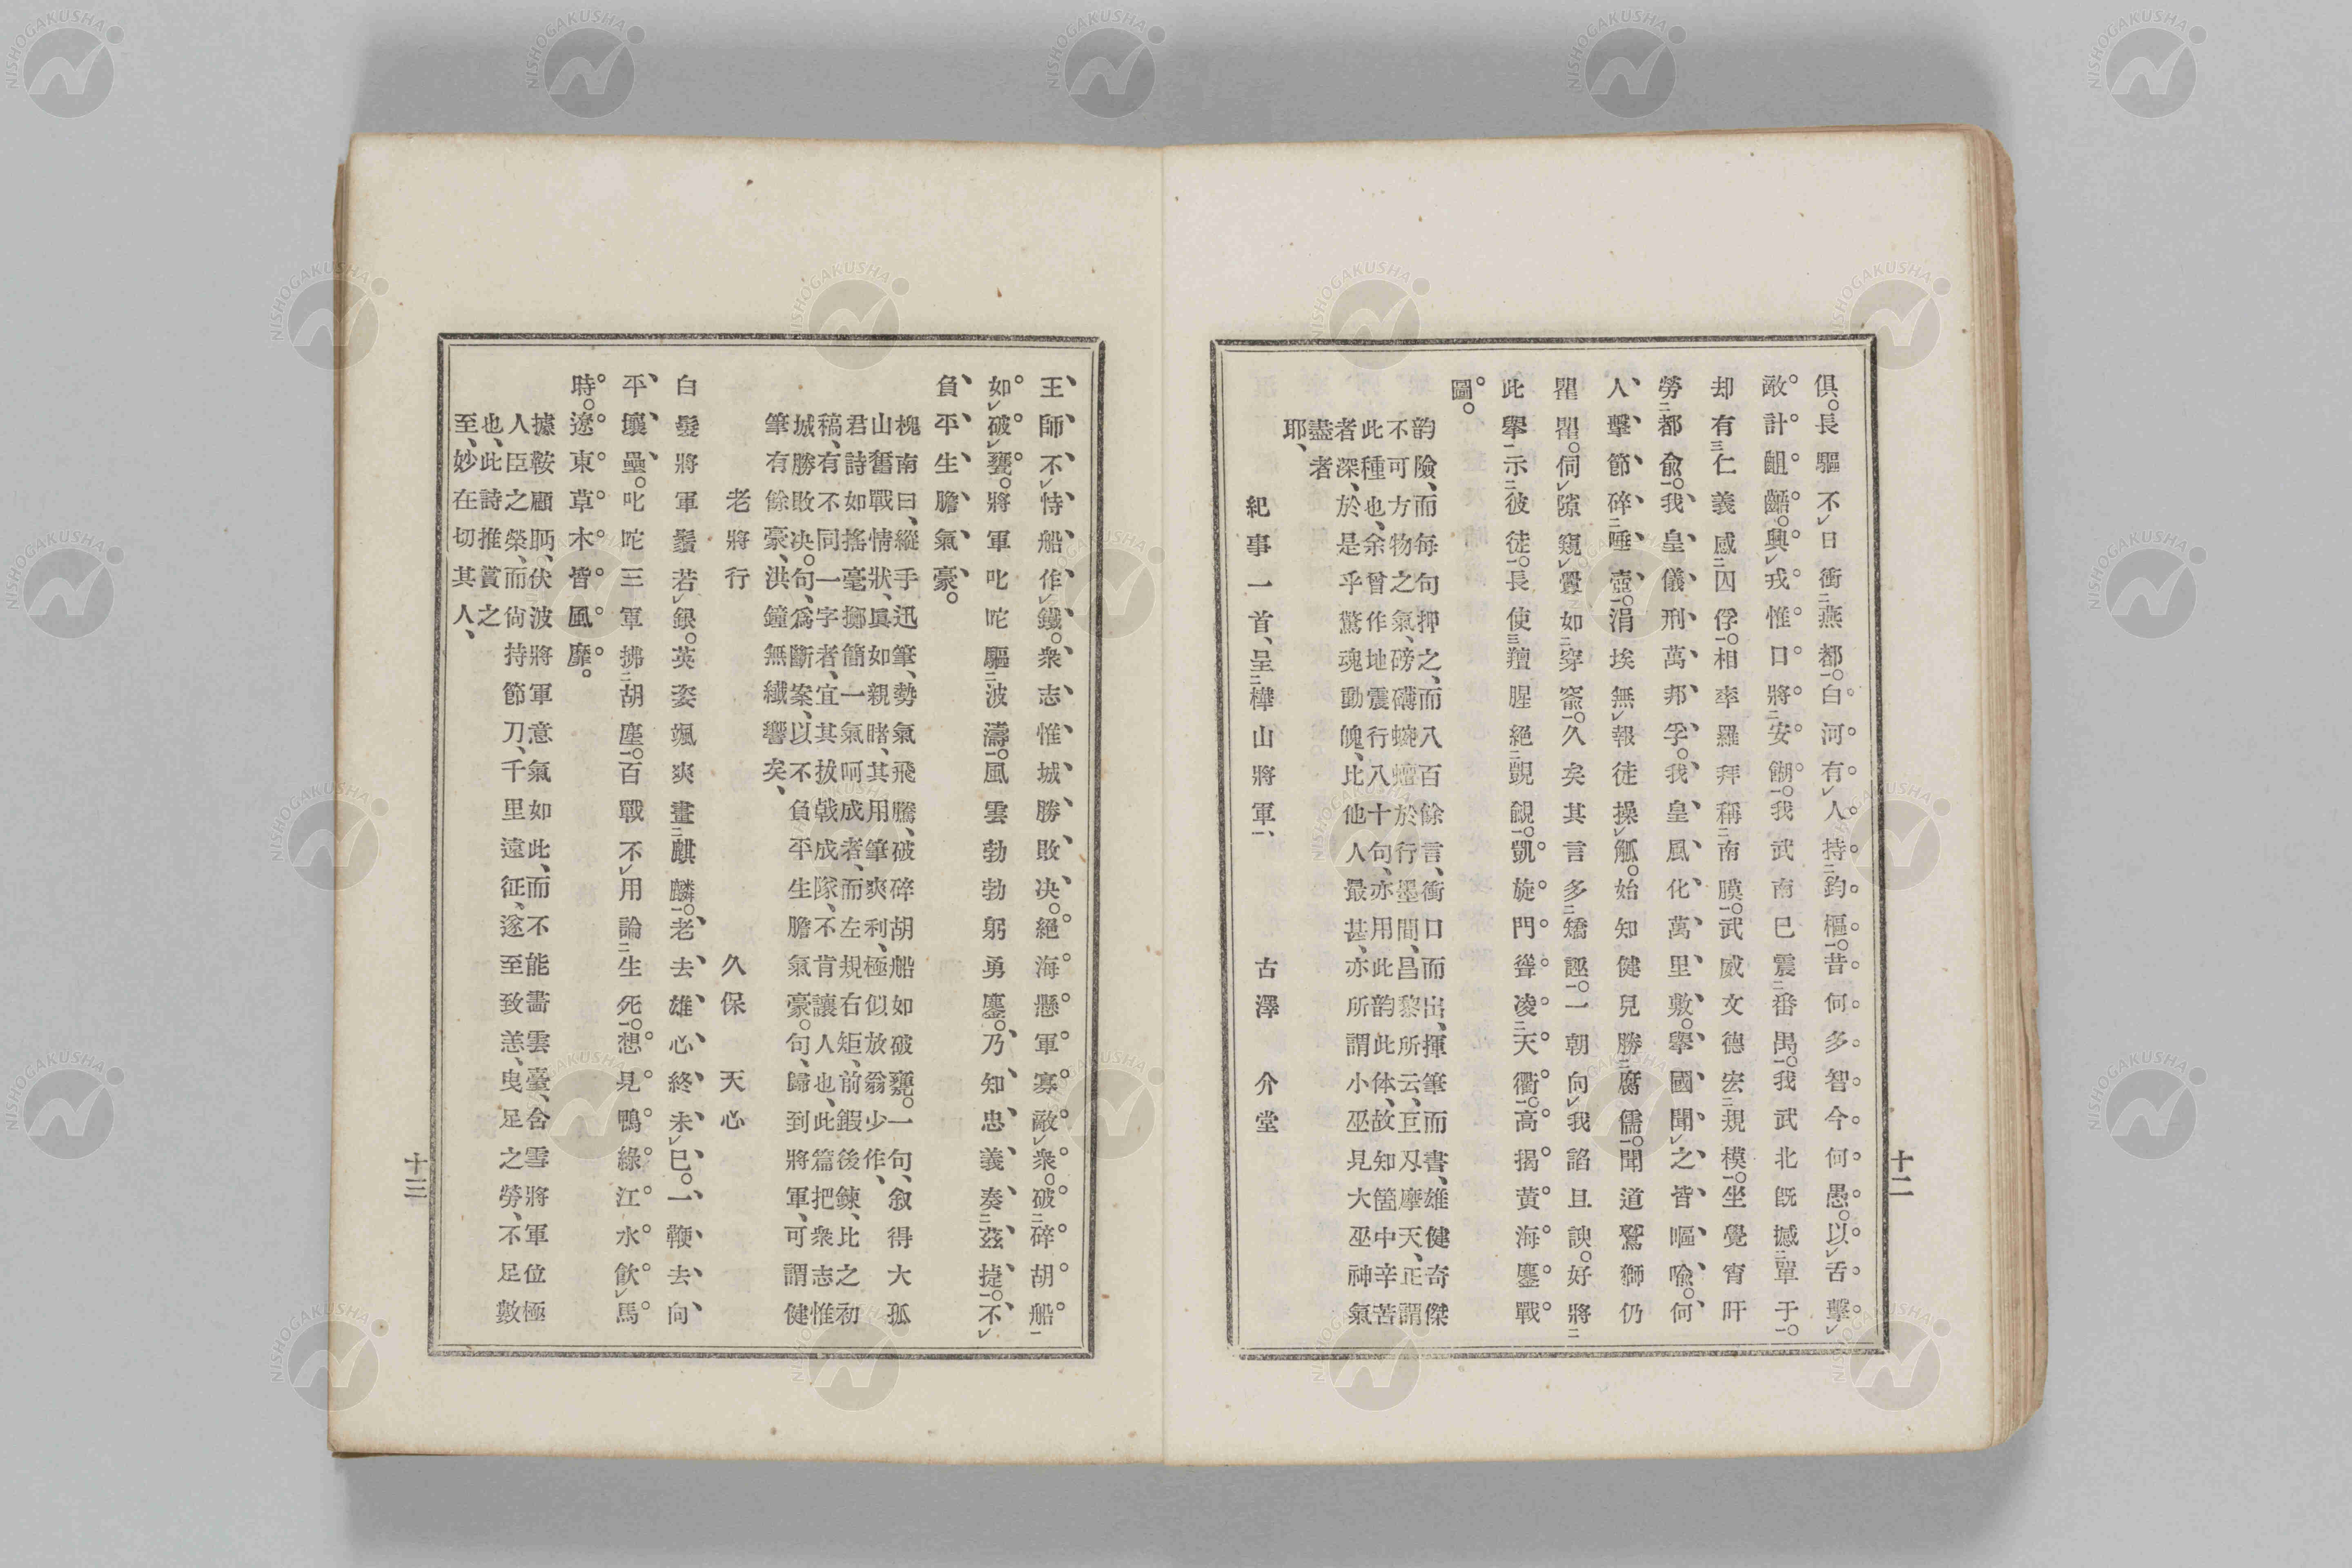 俱。長驅不日衝燕都。白河有人持鈞樞。昔何多智今何愚。以舌擊
敵計齟齬。興戎惟口將安餬。我武南已震番禺。我武北既撼單于。
却有仁義感囚俘。相率羅拜稱南膜。武威文德宏規模。坐覺宵旰
勞都兪。我皇儀刑萬邦孚。我皇風化萬里敷。擧國聞之皆嘔喩。何
人擊節碎唾壺。涓埃無報徒操觚。始知健兒勝腐儒。聞道鷲獅仍
瞿瞿。伺隙窺釁如穿窬。久矣其言多矯誣。一朝向我諂且諛。好將
此擧示彼徒。長使羶腥絕覬覦。凱旋門聳凌天衢。高揭黃海鏖戰
圖。
韵險、而每句押之、而八百餘言、衝口而出、揮筆而書、雄健奇傑
不可方物之氣、磅礴蜿蟺於行墨間、昌黎所云、巨刃摩天、正謂
此種也、余曾作地震行八十句、亦用此韵此体、故知箇中辛苦
者深、於是乎驚魂動魄、比他人最甚、亦所謂小巫見大巫神氣
盡者
耶、
紀事一首、呈樺山將軍、 古澤 介堂
十二
王師不恃船作鐵。衆志惟城勝敗决。絕海懸軍寡敵衆。破碎胡船
如破甕。將軍叱咤驅波濤。風雲勃勃躬勇鏖。乃知忠義奏茲捷。不
負平生膽氣豪。
槐南曰、縱手迅筆、勢氣飛騰、破碎胡船如破甕。一句、叙得大孤
山奮戰情狀、眞如親睹、其用筆爽利、極似放翁少作、
君詩如搖毫擲簡一氣呵成者、而左規右矩、前鍜後鍊、比之初
稿、有不同一字者、宜其拔戟成隊、不肯讓人也、此篇把衆志惟
城勝敗决。句、爲斷案、以不負平生膽氣豪。句、歸到將軍、可謂健
筆有餘豪、洪鐘無纎響矣、
老將行 久保 天心
白髮將軍鬚若銀。英姿颯爽畫麒麟。老去雄心終未已。一鞭去向
平壤壘。叱咤三軍拂胡塵。百戰不用論生死。想見鴨綠江水飮馬
時。遼東草木皆風靡。
據鞍顧眄、伏波將軍意氣如此、而不能畵雲臺、合雪將軍位極
人臣之榮、而尙持節刀、千里遠征、遂至致恙、曳足之勞、不足數
也、此詩推賞之
至、妙在切其人、
十三